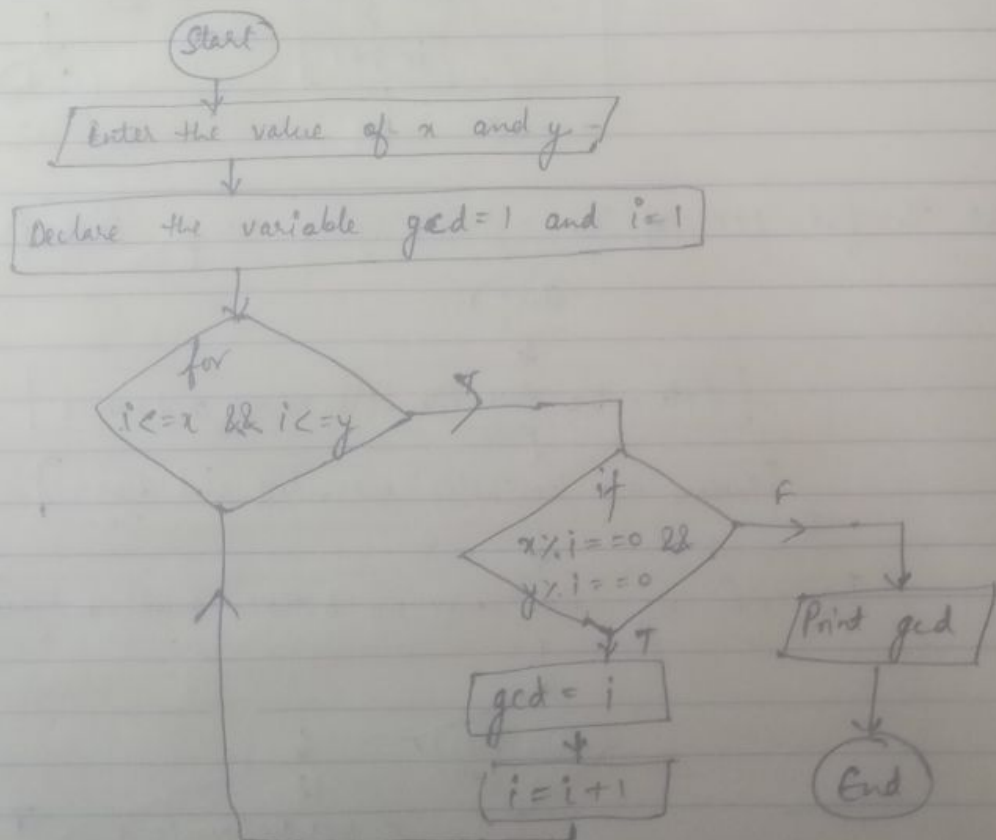 Start
Enter the value of x and y
Declare the variable gcd=1 and i=1
for
i<=x && i<=y
if
x%i==0 &&
y%i==0
F
T
Print gcd
gcd = i
i = i+1
End